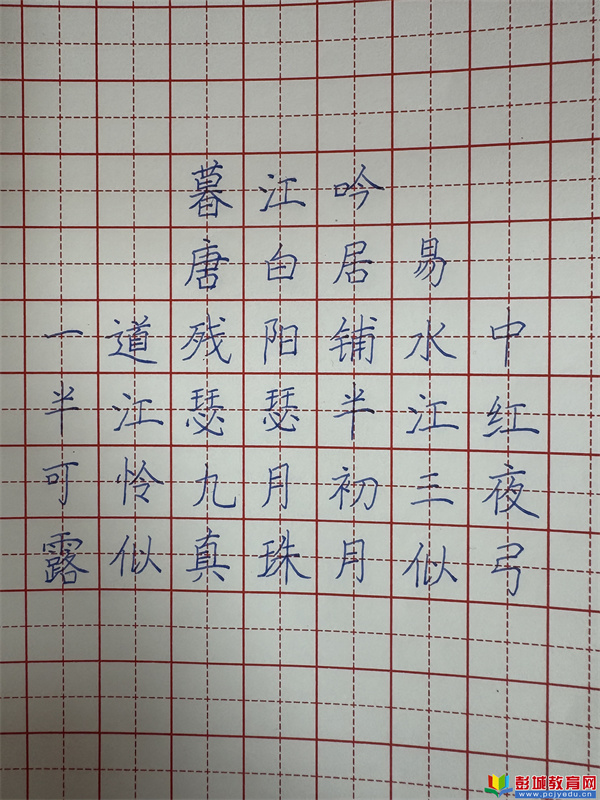 暮江吟
唐白居易
一道残阳铺水中
半江瑟瑟半江红
可怜九月初三夜
露似真珠月似弓
彭城教育网
www.pcjyedu.cn